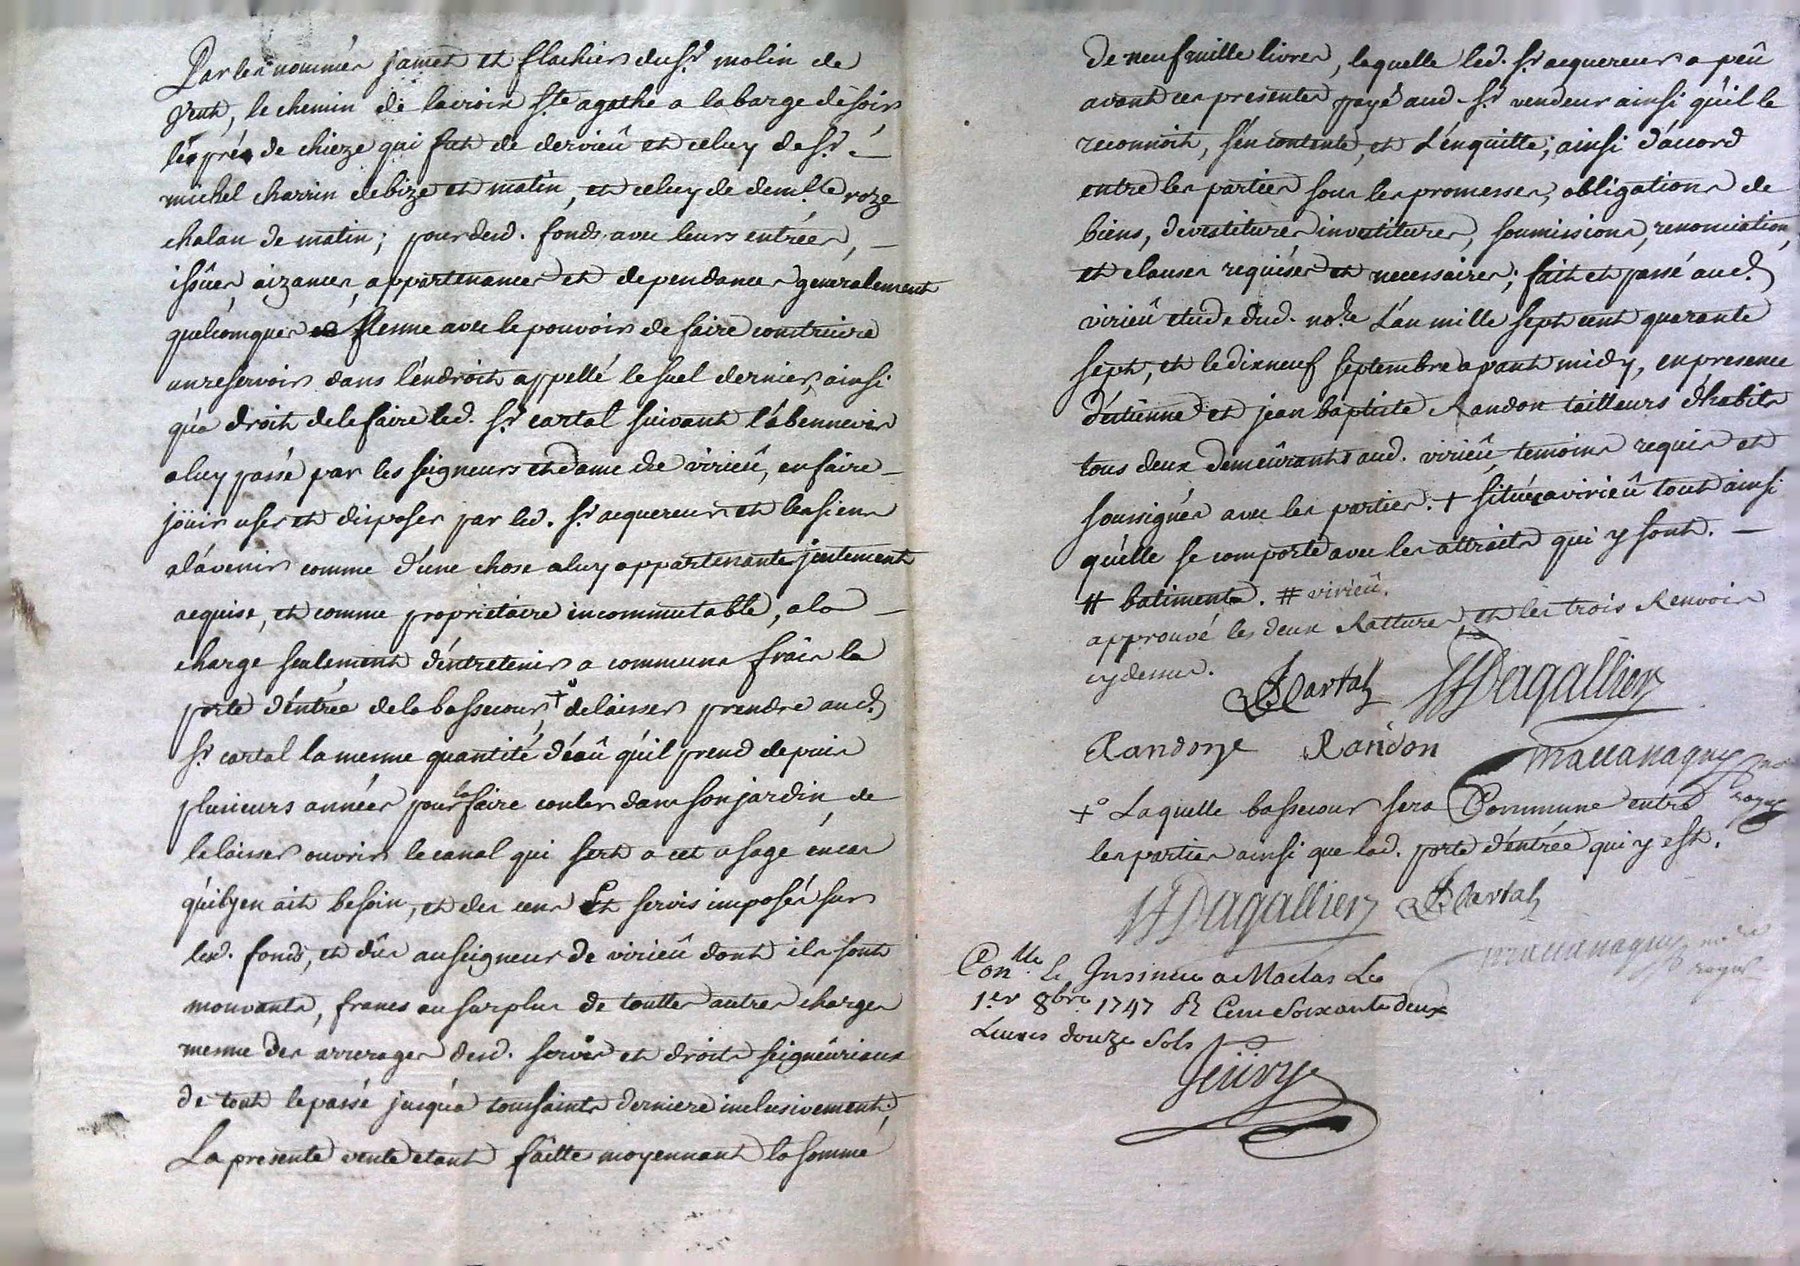 Par les nommés jamet et flachier du sr. molin de
vent, le chemin de lacroix ste. agathe a la barge de soir
les prés de chieze qui fut de dervieû et celuy de sr.
michel charrin de bize et matin, et celuy de demlle. roze
chalan de matin; pour desd. fonds avec leurs entrées,
issûes, aizances, appartenances et dependances generalement
quelconques meme avec le pouvoir de faire construire
un reservoir dans l'éndroit appellé le suel dernier, ainsi
qu'a droit de le faire led. sr. cartal suivant l'abennevis
a luy passé par les seigneurs et dame de virieû, en faire
joüir user et disposer par led. sr. acquereur et les siens
a l'avenir comme d'une chose a luy appartenante justement
acquise, et comme proprietaire incommutable, a la
charge seulement d'éntretenir a communs frais la
porte d'éntrée de la bassecour, +° de laisser prendre aud.
sr. cartal la meme quantité d'éaû qu'il prend depuis
plusieurs années pour la faire couler dans son jardin de
le laisser ouvrir le canal qui sert a cet usage én cas
qu'il y en ait besoin, et des cens Et servis imposés sur
lesd. fonds, et dûs au seigneur de virieû dont ils sont
mouvants, francs au surplus de touttes autres charges
meme des arrerages desd. servis et droits seigneuriaux
de tout le passé jusqu'a toussaints derniere inclusivement;
La presente vente etant faitte moyennant la somme
de neuf mille livres, laquelle led. sr. acquereur a peû
avant ces presentes payé aud. sr. vendeur ainsi qu'il le
reconnoit, s'én contente, et L'énquitte; ainsi d'accord
entre les parties sous les promesses, obligations de
biens, devestitures investitures, soumissions, renonciations,
et clauses requises et necessaires; fait et passé aud.
virieû etude dud. nore. L'an mille sept cent quarante
sept, et le dixneuf septembre avant midy, en presence
d'étienne et jean baptiste Randon tailleurs d'habits
tous deux demeûrants aud. virieû temoins requis et
soussignés avec les parties. + située a virieû tout ainsi
qu'élle se comporte avec les attraits qui y sont.
# batiments. # virieû.
approuvé les deux Ratures et les trois Renvois
cy dessus.
Cartal Dagallier
Randon Randon
+° Laquelle bassecour sera Commune entre
les parties ainsi que lad. porte d'éntrée qui y est.
Dagallier Cartal
Conlle. & Insinué a Maclas Le
1.er 8bre 1747 R Cent Soixante deux
Livres douze Sols